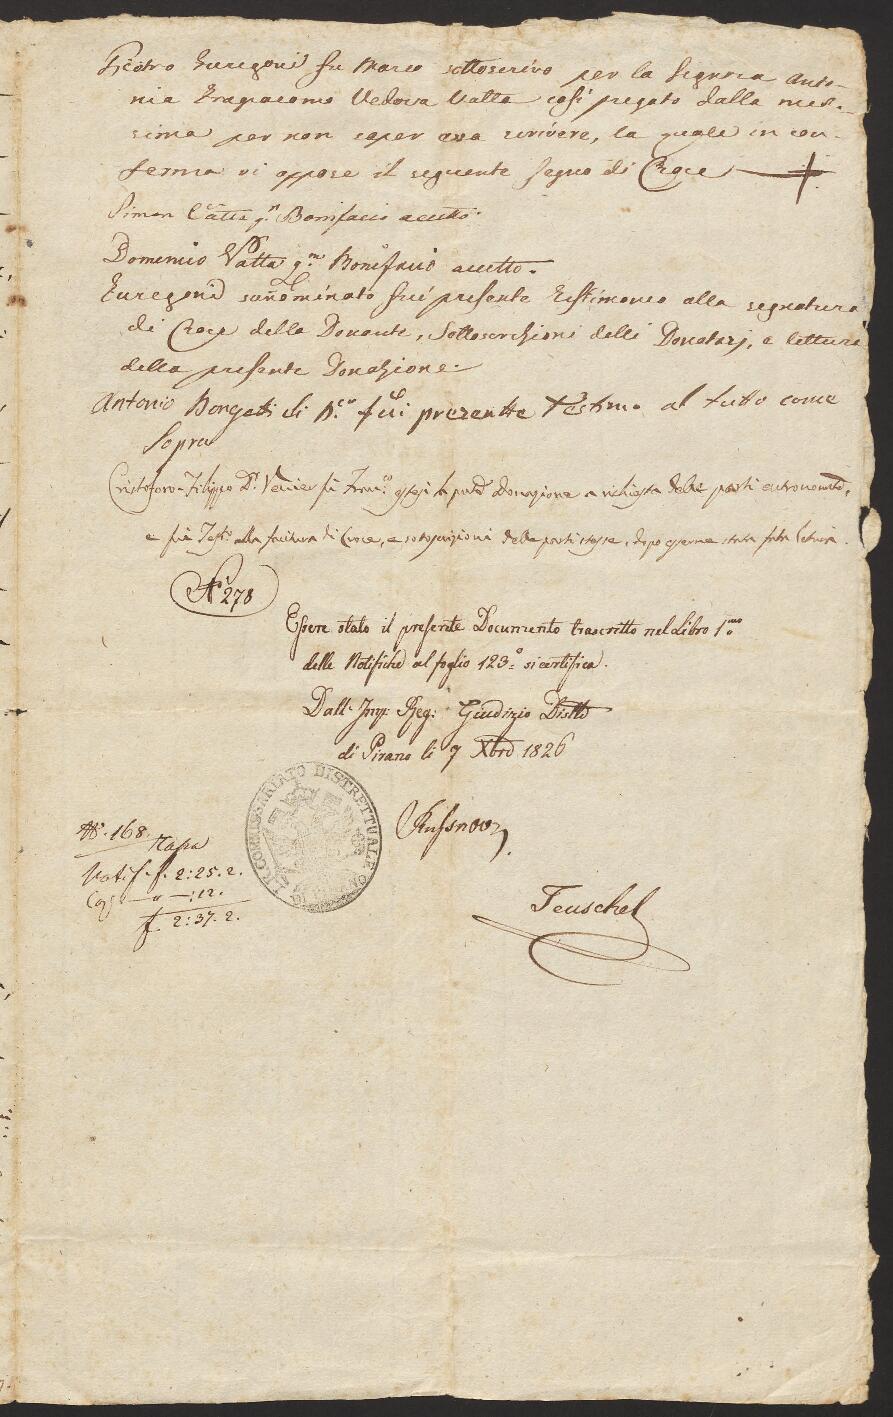 Pietro Euregoni fu Marco sottoscrivo per la Signora Anto-
nia Fragiacomo Vedova Vatta così pregato dalla mede-
sima per non saper essa scrivere, la quale in con-
ferma vi appose il seguente segno di Croce +
Simon Vatta qm Bonifacio accetto.
Domenico Vatta qm Bonifacio accetto.
Euregoni sunnominato fui presente Testimonio alla segnatura
di Croce della Donante, Sottoscrizioni delli Donatarj, e lettura
della presente Donazione.
Antonio Bongati di fui prezentte Testimo al tutto come
Sopra
Cristoforo-Filippo Dr. Venier fu Franco estesi la pnte Donazione a richiesta delle parti antenominate,
e fui Testo alla fattura di Croce, e sotoscrizioni delle parti stesse, dopo esserne stata fatta letura.
N° 278
Essere stato il presente Documento trascritto nel Libro 1mo
delle Notifiche al foglio 123° si certifica.
Dall' Imp: Reg: Giudizio Distto
di Pirano li 7 Xbre 1826
I. R. COMMISSARIATO DISTRETTUALE
N°. 168.
Tassa
Notif. f. 2:25.2.
- " -:12.
f. 2:37.2.
Teuschel